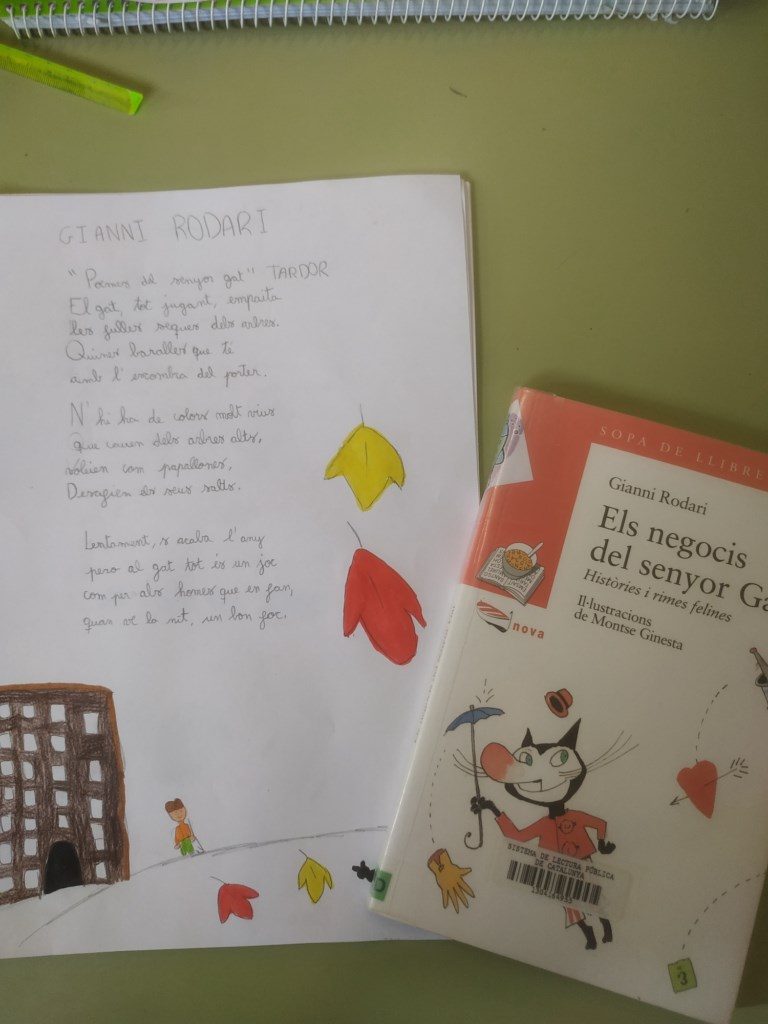 GIANNI RODARI
"Poemes del senyor gat" TARDOR
El gat, tot jugant, empaita
les fulles seques dels arbres.
Quines baralles que té
amb l'escombra del porter.
N'hi ha de colors molt vius
que cauen dels arbres alts,
volien com papallones,
Desafien els seus salts.
Lentament, s acaba l'any
pero al gat tot és un joc
com per als homes que en fan,
quan ve la nit, un bon foc.
SOPA DE LLIBRE
Gianni Rodari
Els negocis
del senyor Ga
Històries i rimes felines
Il·lustracions
de Montse Ginesta
nova
SISTEMA DE LECTURA PÚBLICA
DE CATALUNYA
3